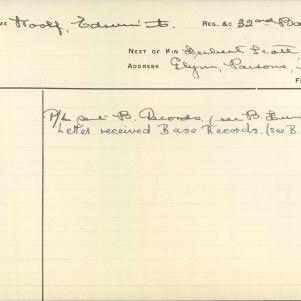 ME Woolf, Edwin S. REG. &C 32nd Ba
NEXT OF KIN Herbert Scott
ADDRESS Glynn, Parsons,
F
P/L sent B. Records. (see B.
Letter received Base Records. (see B.